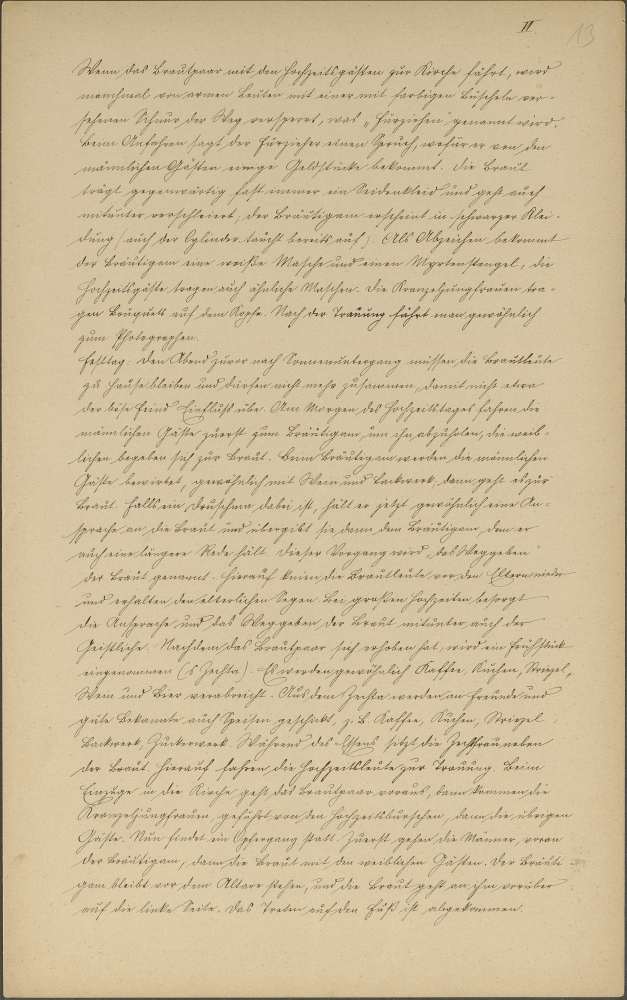 II. 13
Wenn das Brautpaar mit den Hochzeitsgästen zur Kirche fährt, wird
manchmal von armen Leuten mit einer mit farbigen Büscheln ver-
sehenen Schnur der Weg versperrt, was „Fürziehen" genannt wird.
Beim Anfahren sagt der Fürzieher einen Spruch, wofür er von den
männlichen Gästen einige Geldstücke bekommt. Die Braut
trägt gegenwärtig fast immer ein Seidenkleid und geht auch
mitunter verschleiert, der Bräutigam erscheint in schwarzer Klei-
dung (auch der Cylinder taucht bereits auf). Als Abzeichen bekommt
der Bräutigam eine weiße Masche und einen Myrtenstengel, die
Hochzeitsgäste tragen auch ähnliche Maschen. Die Kranzeljungfrauen tra-
gen Bouquets auf dem Kopfe. Nach der Trauung fährt man gewöhnlich
zum Photographen.
Festtag: Den Abend zuvor nach Sonnenuntergang müssen die Brautleute
zu Hause bleiben und dürfen nicht mehr zusammen, damit nicht etwa
der böse Feind Einfluß übe. Am Morgen des Hochzeitstages fahren die
männlichen Gäste zuerst zum Bräutigam, um ihn abzuholen, die weib-
lichen begeben sich zur Braut. Beim Bräutigam werden die männlichen
Gäste bewirtet, gewöhnlich mit Wein und Backwerk, dann geht es zur
Braut. Falls ein Druschma dabei ist, hält er jetzt gewöhnlich eine An-
sprache an die Braut und übergibt sie dann dem Bräutigam, dem er
auch eine längere Rede hält. Dieser Vorgang wird „das Weggeben"
der Braut genannt. Hierauf knien die Brautleute vor den Eltern nieder
und erhalten den elterlichen Segen. Bei großen Hochzeiten besorgt
die Ansprache und das Weggeben der Braut mitunter auch der
Geistliche. Nachdem das Brautpaar sich erhoben hat, wird ein Frühstück
eingenommen (s Zechta). Es werden gewöhnlich Kaffee, Kuchen, Striezel,
Wein und Bier verabreicht. Aus dem Zechta werden an Freunde und
gute Bekannte auch Speisen geschickt, z. B. Kaffee, Kuchen, Striezel,
Backwerk, Zuckerwerk. Während des Essens sitzt die Zechfrau neben
der Braut. Hierauf fahren die Hochzeitsleute zur Trauung. Beim
Einzuge in die Kirche geht das Brautpaar voraus, dann kommen die
Kranzeljungfrauen, geführt von den Hochzeitsburschen, dann die übrigen
Gäste. Nun findet ein Opfergang statt. Zuerst gehen die Männer, voran
der Bräutigam, dann die Braut mit den weiblichen Gästen. Der Bräuti-
gam bleibt vor dem Altare stehen, und die Braut geht an ihm vorüber
auf die linke Seite. Das Treten auf den Fuß ist abgekommen.